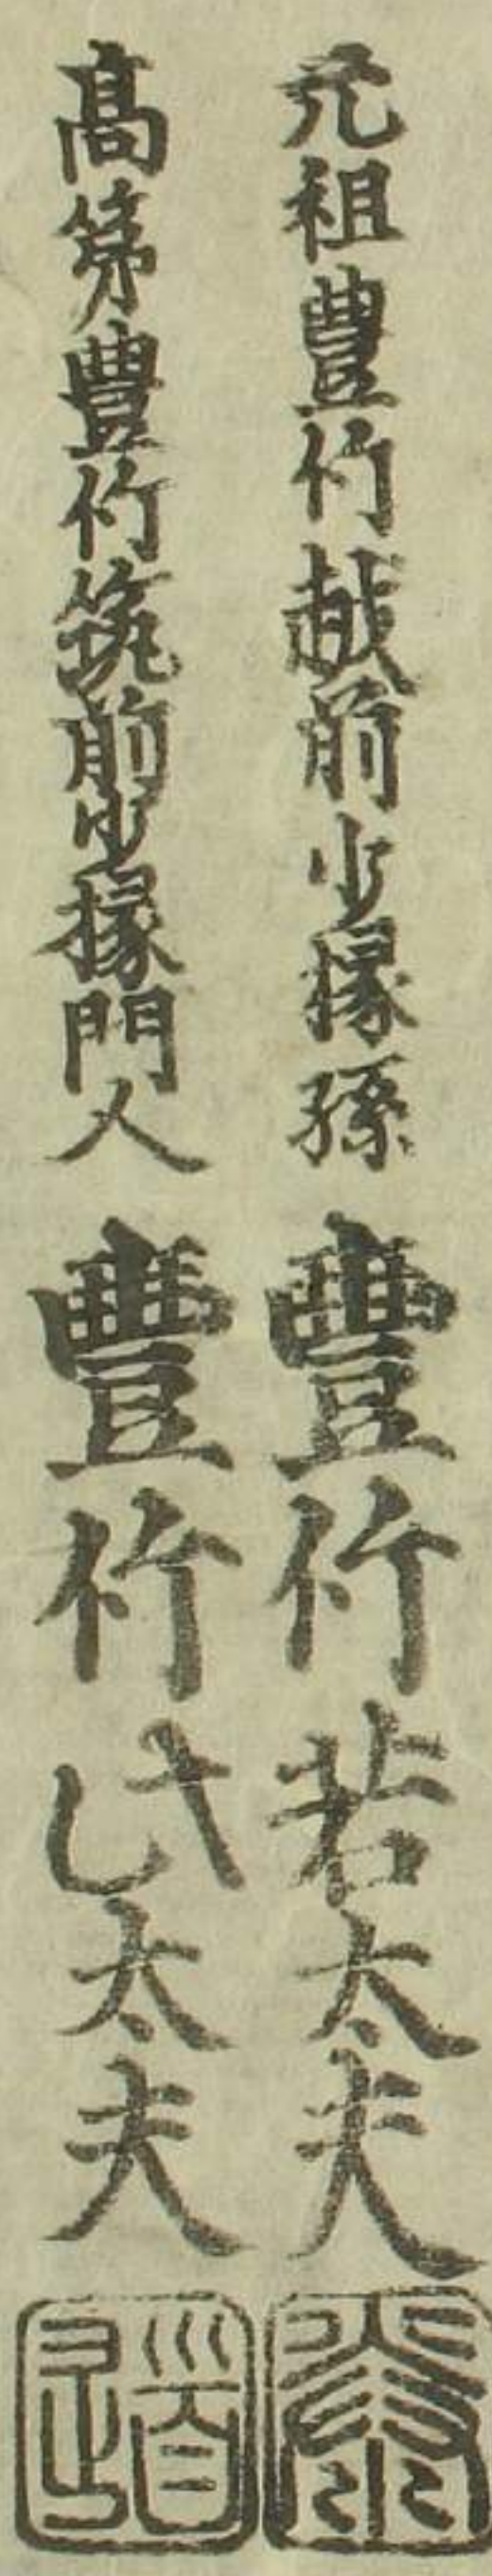 元祖豊竹越前少掾孫 豐竹若太夫
髙第豊竹筑前少掾門人 豐竹此太夫
道